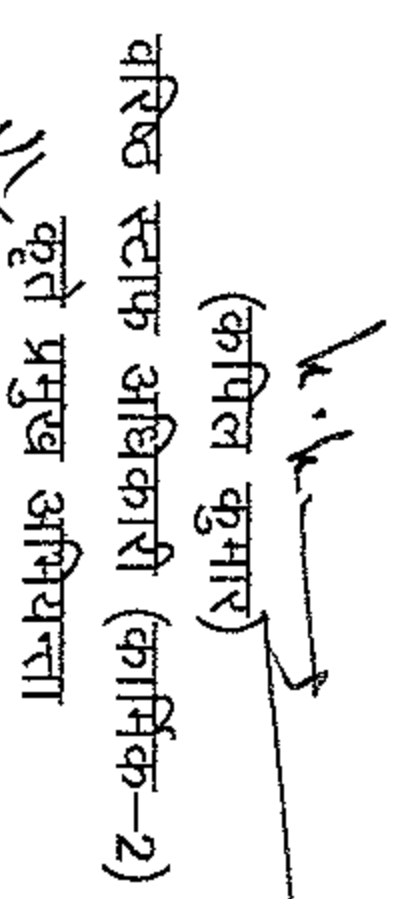 (कपिल कुमार)
वरिष्ठ स्टाफ अधिकारी (कार्मिक-2)
कृते प्रमुख अभियन्ता